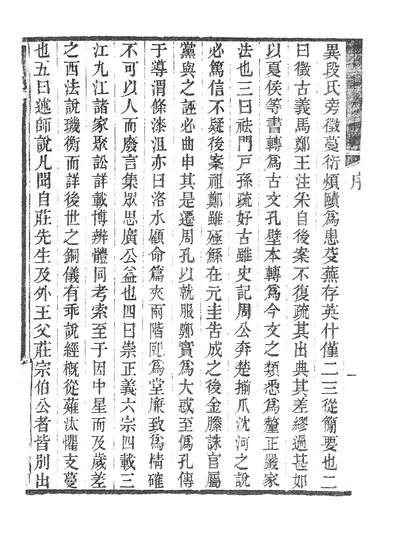 序
異段氏旁徵蔓衍煩賾爲患芟蕪存英什僅二三從簡要也二
曰徵古義馬鄭王注采自後案不復疏其出典其差繆過甚如
以夏侯等書轉爲古文孔壁本轉爲今文之類悉爲釐正嚴家
法也三曰祛門戸孫疏好古雖史記周公奔楚揃爪沈河之說
必篤信不疑後案祖鄭雖殛鯀在元圭告成之後金縢誅官屬
黨與之誣必曲申其是遷周孔以就服鄭實爲大惑至僞孔傳
于導渭條漆沮亦曰洛水顧命篇夾兩階戺爲堂廉致爲精確
不可以人而廢言集眾思廣公益也四曰崇正義六宗四載三
江九江諸家聚訟詳載博辨體同考索至于因中星而及歲差
之西法說璣衡而詳後世之銅儀有乖說經概從薙汰懼支蔓
也五曰述師說凡聞自莊先生及外王父莊宗伯公者皆別出
一